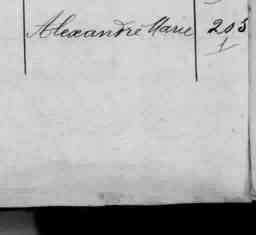 Alexandre Marie 203
1